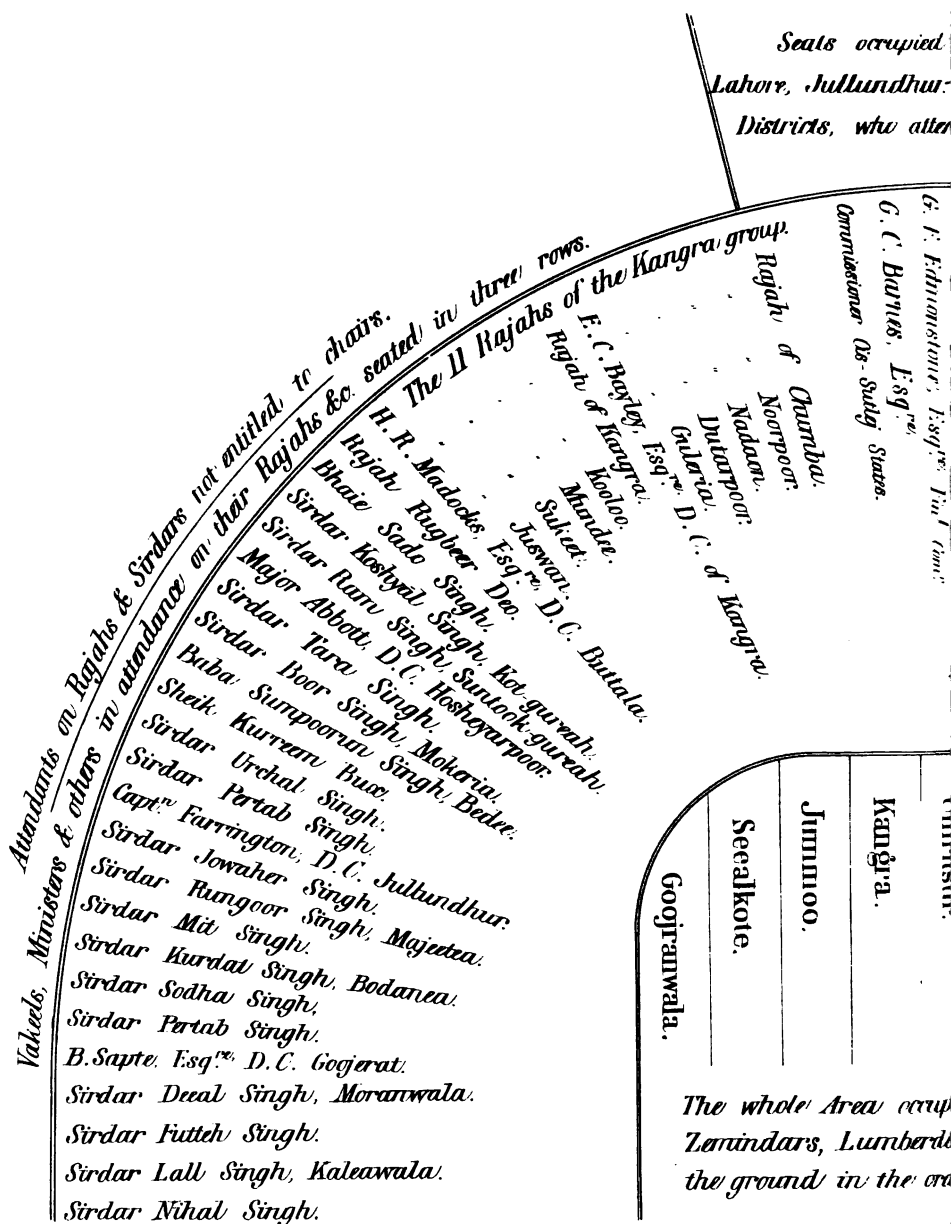 Seats occupied
Lahore, Jullundhur
Districts, who
Attendants on Rajahs & Sirdars not entitled to chairs.
Vakeels, Ministers & others in attendance on their Rajahs &c. seated in three rows.
The 11 Rajahs of the Kangra group.
G. F. Edmonstone, Esqre
G. C. Barnes, Esqre,
Commissioner Cis-Sutlej States.
Rajah of Chumba.
" " Noorpoor.
" " Nadaon.
" " Dutarpoor.
" " Guleria.
E. C. Bayley, Esqre. D. C. of Kangra.
Rajah of Kangra.
" " Kooloo.
" " Mundee.
" " Sukeet.
" " Juswan.
H. R. Madocks, Esqre, D. C. Buttala.
Rajah Rugbeer Deo.
Bhaie Sado Singh.
Sirdar Koshyal Singh, Kot-gureah.
Sirdar Ram Singh, Suntook-gureah.
Major Abbott, D.C. Hosheyarpoor.
Sirdar Tara Singh.
Sirdar Boor Singh, Mokeria.
Baba Sumpoorun Singh, Bedee.
Sheik Kurreem Bux.
Sirdar Urchal Singh.
Sirdar Pertab Singh.
Captn. Farrington, D.C. Jullundhur.
Sirdar Jowaher Singh.
Sirdar Rungoor Singh, Majeetea.
Sirdar Mit Singh.
Sirdar Kurdat Singh, Bodanea.
Sirdar Sodha Singh,
Sirdar Pertab Singh.
B. Sapte. Esqre, D.C. Goojerat.
Sirdar Deeal Singh, Moranwala.
Sirdar Futteh Singh.
Sirdar Lall Singh, Kaleawala.
Sirdar Nihal Singh.
Goojranwala.
Seealkote.
Jummoo.
Kangra.
The whole Area
Zemindars,
the ground in the